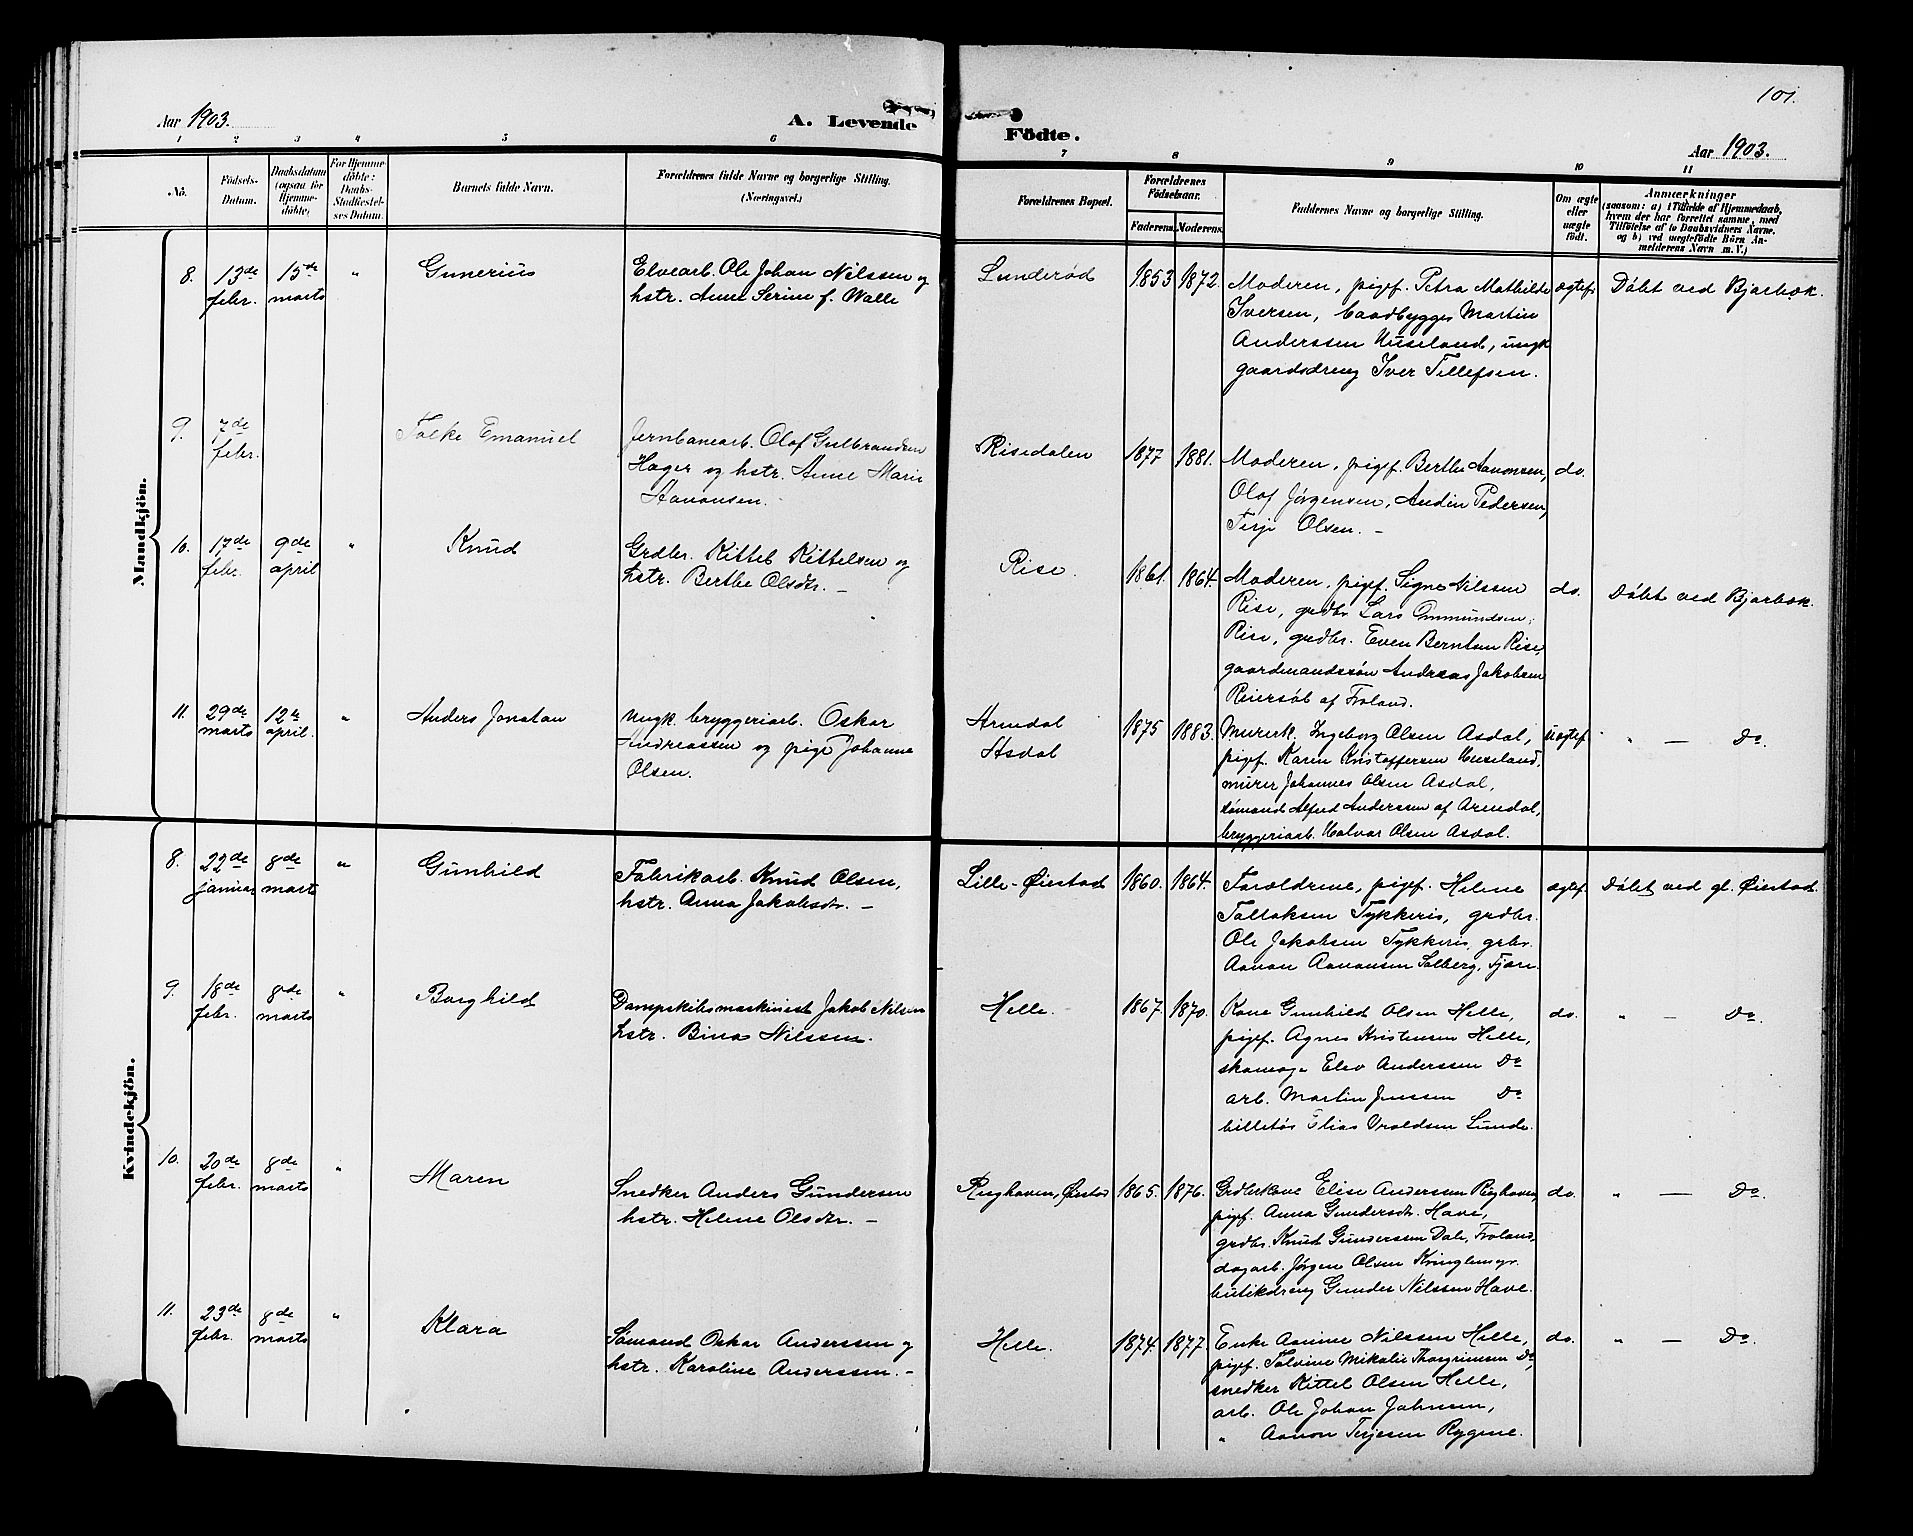 101.
Aar 1903.
A. Levende Födte.
Aar 1903.
1 2 3 4 5 6 7 8 9 10 11
Nö.
Födsels-
Datum.
Daabsdatum
(ogsaa for
Hjemme-
döbte)
For Hjemme-
döbte:
Daabs-
Stadfæstel-
ses Datum.
Barnets fulde Navn.
Forældrenes fulde Navne og borgerlige Stilling.
(Næringsvei.)
Forældrenes Bopæl.
Forældrenes
Födselsaar.
Faderens. Moderens.
Faddernes Navne og borgerlige Stilling.
Om ægte
eller
uægte
födt.
Anmærkninger
(saasom: a) i Tilfælde af Hjemmedaab,
hvem der har forrettet samme, med
Tilföielse af to Daabsvidners Navne.
og b) ved uægtefödte Börn An-
melderens Navn m. V.)
Mandkjön.
8. 13de febr. 15de marts " Gunerius
Elvearb. Ole Johan Nilssen og
hstr. Anne Serine f. Walle
Lunderød 1853 1872.
Moderen, pigef. Petra Mathilde
Iversen, baadbygger Martin
Anderssen Huseland, ungk
gaardsdreng Iver Tellefsen.
ægtef. Døbt ved Bjorbæk.
9. 7de febr. Falke Emanuel
Jernbanearb. Olaf Gulbrandsen
Hager og hstr. Anne Marie
Aavonsen.
Risedalen 1877 1881.
Moderen, pigef. Berthe Aanonsen,
Olaf Jørgensen, Audin Pedersen,
Terje Olsen. —
do.
10. 17de febr. 9de april " Knud
Grdbr. Kittel Kittelsen og
hstr. Berthe Olsdtr. —
Rise. 1861. 1864.
Moderen, pigef. Signe Nilssen
Rise, grdbr Lars Ommundsen,
Rise, grdbr. Even Berntsen Rise,
gaardmandssøn Andreas Jakobsen
Reiersøl af Froland.
do. Døbt ved Bjorbæk.
11. 29de marts 12te april. " Anders Jonatan
Ungk. bryggeriarb. Oskar
Andreassen og pige Johanne
Olsen.
Arendal
Asdal
1875 1883.
Murerk. Ingeborg Olsen Asdal,
pigef. Karen Kristoffersen Huseland,
murer Johannes Olsen Asdal,
sømand Alfred Anderssen af Arendal,
bryggeriarb. Halvor Olsen Asdal.
uægtef. " — Do.
Kvindekjön.
8. 22de januar 8de marts " Gunhild
Fabrikarb. Knud Olsen,
hstr. Anna Jakobsdtr. —
Lille-Øiestad 1860. 1864.
Foreldrene, pigef. Helene
Tallaksen Tykkeris, grdbr.
Ole Jakobsen Tykkeris, grbr.
Aanon Aanonsen Solberg, Fjære.
ægtef. Døbt ved gl. Øiestad.
9. 18de febr. 8de marts " Borghild
Dampskibsmaskinist Jakob Nilsen
hstr. Bina Nilssen.
Helle. 1867. 1870.
Kone Gunhild Olsen Helle,
pigef. Agnes Kristensen Helle,
skomag. Elev Anderssen Do
arb. Martin Jenssen Do
billetør Elias Vraldsen Lunde.
do. " — Do.
10. 20de febr. 8de marts " Maren
Snedker Anders Gundersen
hstr. Helene Olsdtr. —
Rughaven, Øiestad 1865. 1876.
Grdbrkone Elise Anderssen Rughaven
pigef. Anna Gundersdtr. Have,
grdbr. Knud Gunderssen Dale, Froland,
dagarb. Jørgen Olsen
butikdreng Gunder Nilssen Have.
do. " — Do.
11. 23de febr. 8de marts " Klara
Sømand Oskar Anderssen og
hstr. Karoline Anderssen. —
Helle. 1874. 1877.
Enke Nilssen Helle,
pigef. Mikalie Thorgrimsen Do,
snedker Kittel Olsen Helle,
arb. Ole Johan Johnsen,
" Aanon Terjesen Rygene.
do. " — Do.